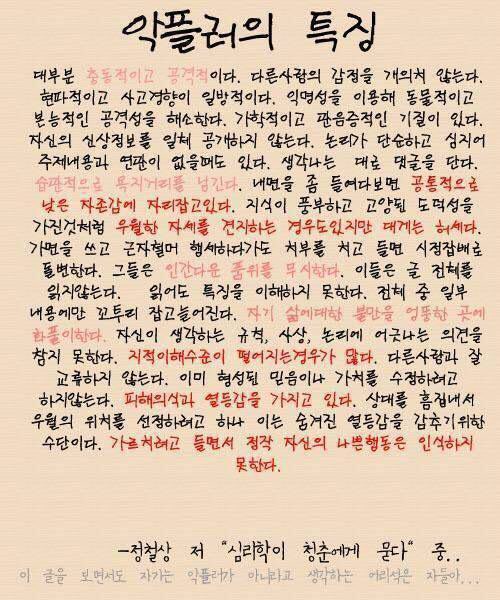 악플러의 특징
대부분 충동적이고 공격적이다. 다른사람의 감정을 개의치 않는다.
현파적이고 사고경향이 일방적이다. 익명성을 이용해 동물적이고
본능적인 공격성을 해소한다. 가학적이고 관음증적인 기질이 있다.
자신의 신상정보를 일체 공개하지 않는다. 논리가 단순하고 심지어
주제내용과 연관이 없을때도 있다. 생각나는 대로 댓글을 단다.
습관적으로 욕지거리를 남긴다. 내면을 좀 들여다보면 공통적으로
낮은 자존감에 자리잡고있다. 지식이 풍부하고 고양된 도덕성을
가진것처럼 우월한 자세를 견지하는 경우도있지만 대게는 허세다.
가면을 쓰고 군자연하며 행세하다가도 치부를 치고 들면 시정잡배로
돌변한다. 그들은 인간다운 품위를 무시한다. 이들은 글 전체를
읽지않는다. 읽어도 특징을 이해하지 못한다. 전체 중 일부
내용에만 꼬투리 잡고늘어진다. 자기 삶에대한 불만을 엉뚱한 곳에
화풀이한다. 자신이 생각하는 규칙, 사상, 논리에 어긋나는 의견을
참지 못한다. 지적이해수준이 떨어지는경우가 많다. 다른사람과 잘
교류하지 않는다. 이미 형성된 믿음이나 가치를 수정하려고
하지않는다. 피해의식과 열등감을 가지고 있다. 상대를 흠집내서
우월의 위치를 선정하려고 하나 이는 숨겨진 열등감을 감추기위한
수단이다. 가르쳐려고 들면서 정작 자신의 나쁜행동은 인식하지
못한다.
-정철상 저 "심리학이 청춘에게 묻다" 중..
이 글을 보면서도 자기는 악플러가 아니라고 생각하는 어리석은 자들아...